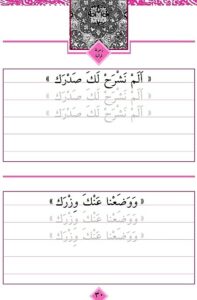 « أَلَمْ نَشْرَحْ لَكَ صَدْرَك »
« أَلَمْ نَشْرَحْ لَكَ صَدْرَك »
« أَلَمْ نَشْرَحْ لَكَ صَدْرَك »
« وَوَضَعْنا عَنْكَ وِزْرَك »
« وَوَضَعْنا عَنْكَ وِزْرَك »
« وَوَضَعْنا عَنْكَ وِزْرَك »
٣٠